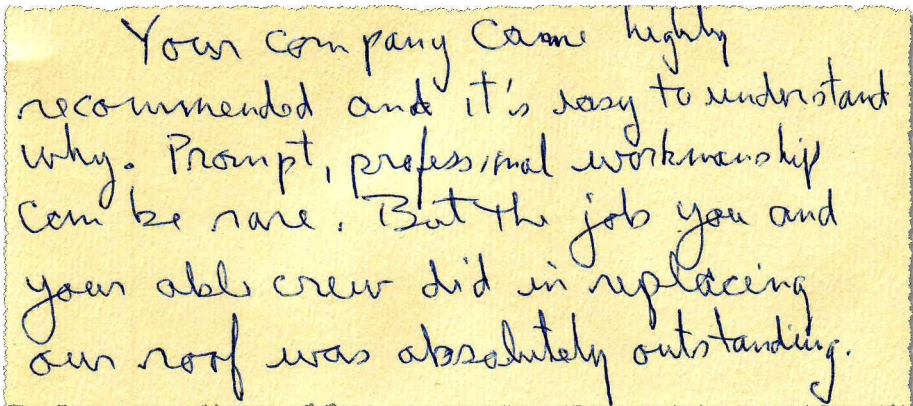 Your company came highly
recommended and it's easy to understand
why. Prompt, professional workmanship
can be rare. But the job you and
your able crew did in replacing
our roof was absolutely outstanding.